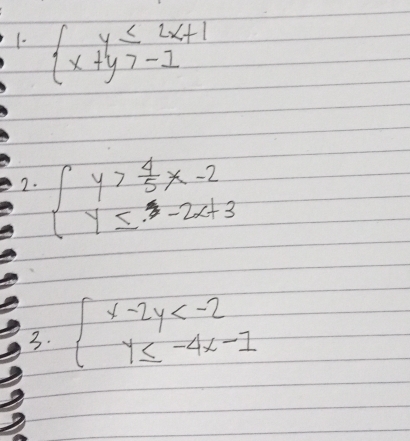 1. { y ≤ 2x+1
x+y > -1
2. { y > 4/5 x - 2
y ≤ -2x+3
3. { x-2y < -2
y ≤ -4x-1